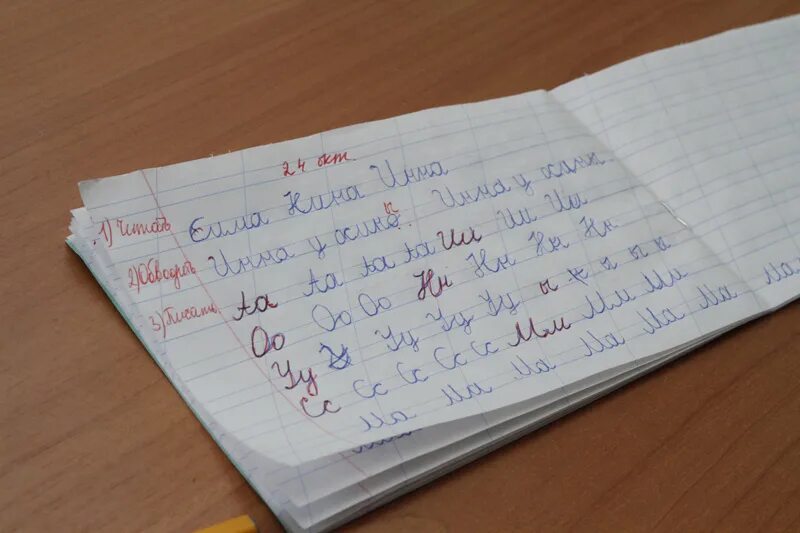 24 окт.
1) Читать Сима Нина Инна
2) Обводить Инна у осины. Инна у осины.
3) Писать Аа Аа Аа Аа Ии Ии Ии
Оо Оо Оо Нн Нн Нн Нн
Уу Уу Уу Уу ы ы ы ы
Сс Сс Сс Сс Сс Мм Мм Ми
Ма Ма Ма Ма Ма Ма Ма